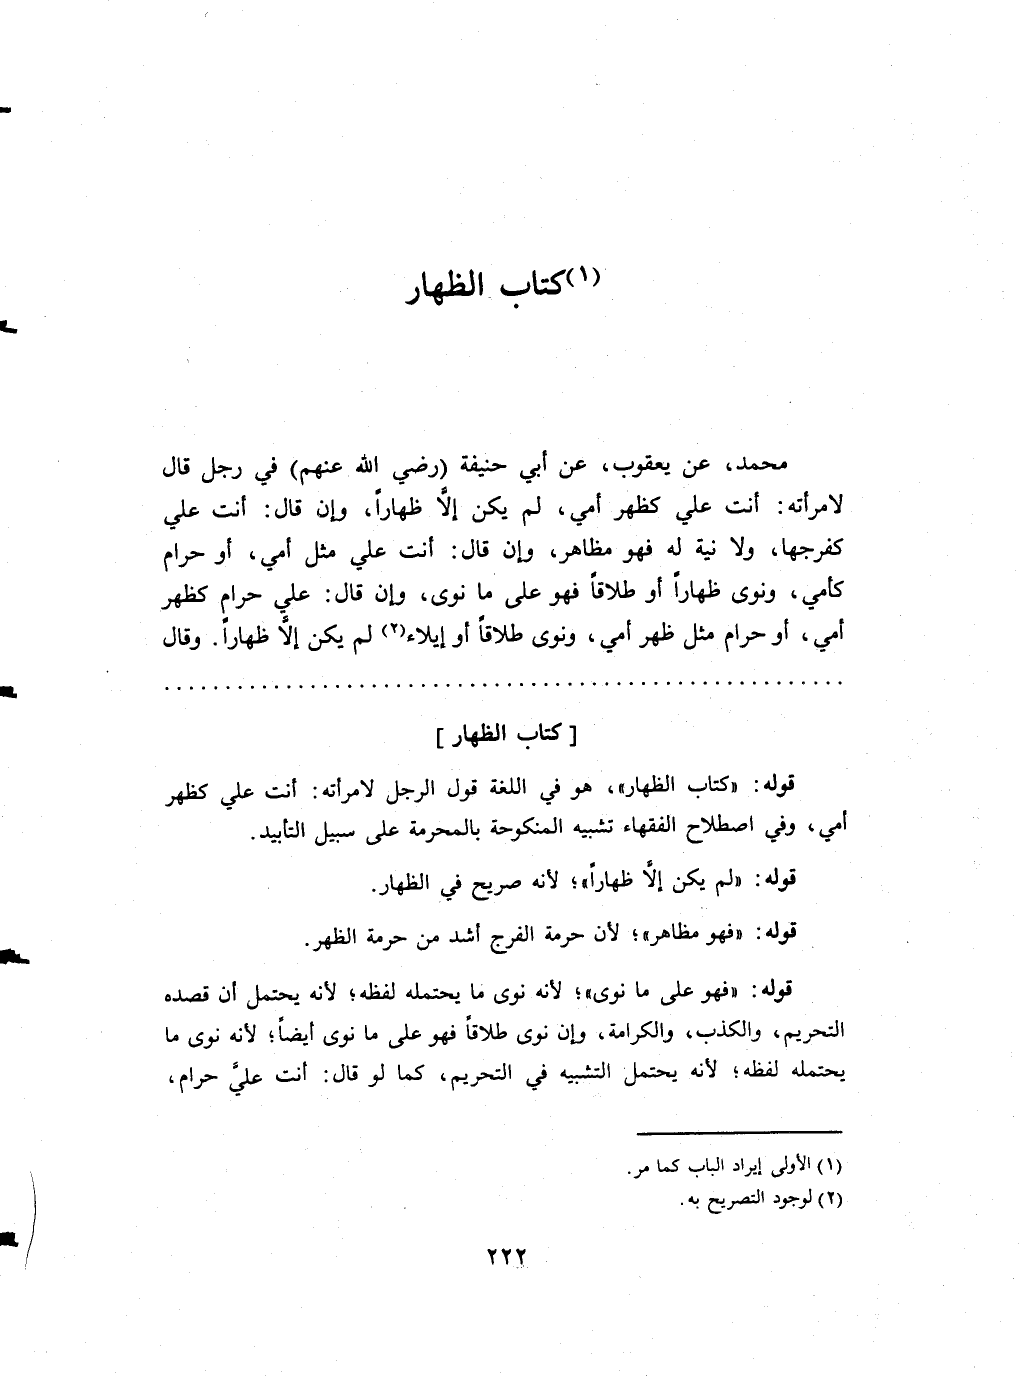 (١) كتاب الظهار
محمد، عن يعقوب، عن أبي حنيفة (رضي الله عنهم) في رجل قال
لامرأته: أنت علي كظهر أمي، لم يكن إلَّا ظهاراً، وإن قال: أنت علي
كفرجها، ولا نية له فهو مظاهر، وإن قال: أنت علي مثل أمي، أو حرام
كأمي، ونوى ظهاراً أو طلاقاً فهو على ما نوى، وإن قال: علي حرام كظهر
أمي، أو حرام مثل ظهر أمي، ونوى طلاقاً أو إيلاء(٢) لم يكن إلَّا ظهاراً. وقال
[ كتاب الظهار ]
قوله: «كتاب الظهار»، هو في اللغة قول الرجل لامرأته: أنت علي كظهر
أمي، وفي اصطلاح الفقهاء تشبيه المنكوحة بالمحرمة على سبيل التأبيد.
قوله: «لم يكن إلَّا ظهاراً»؛ لأنه صريح في الظهار.
قوله: «فهو مظاهر»؛ لأن حرمة الفرج أشد من حرمة الظهر.
قوله: «فهو على ما نوى»؛ لأنه نوى ما يحتمله لفظه؛ لأنه يحتمل أن قصده
التحريم، والكذب، والكرامة، وإن نوى طلاقاً فهو على ما نوى أيضاً؛ لأنه نوى ما
يحتمله لفظه؛ لأنه يحتمل التشبيه في التحريم، كما لو قال: أنت عليَّ حرام،
(١) الأولى إيراد الباب كما مر.
(٢) لوجود التصريح به.
٢٢٢